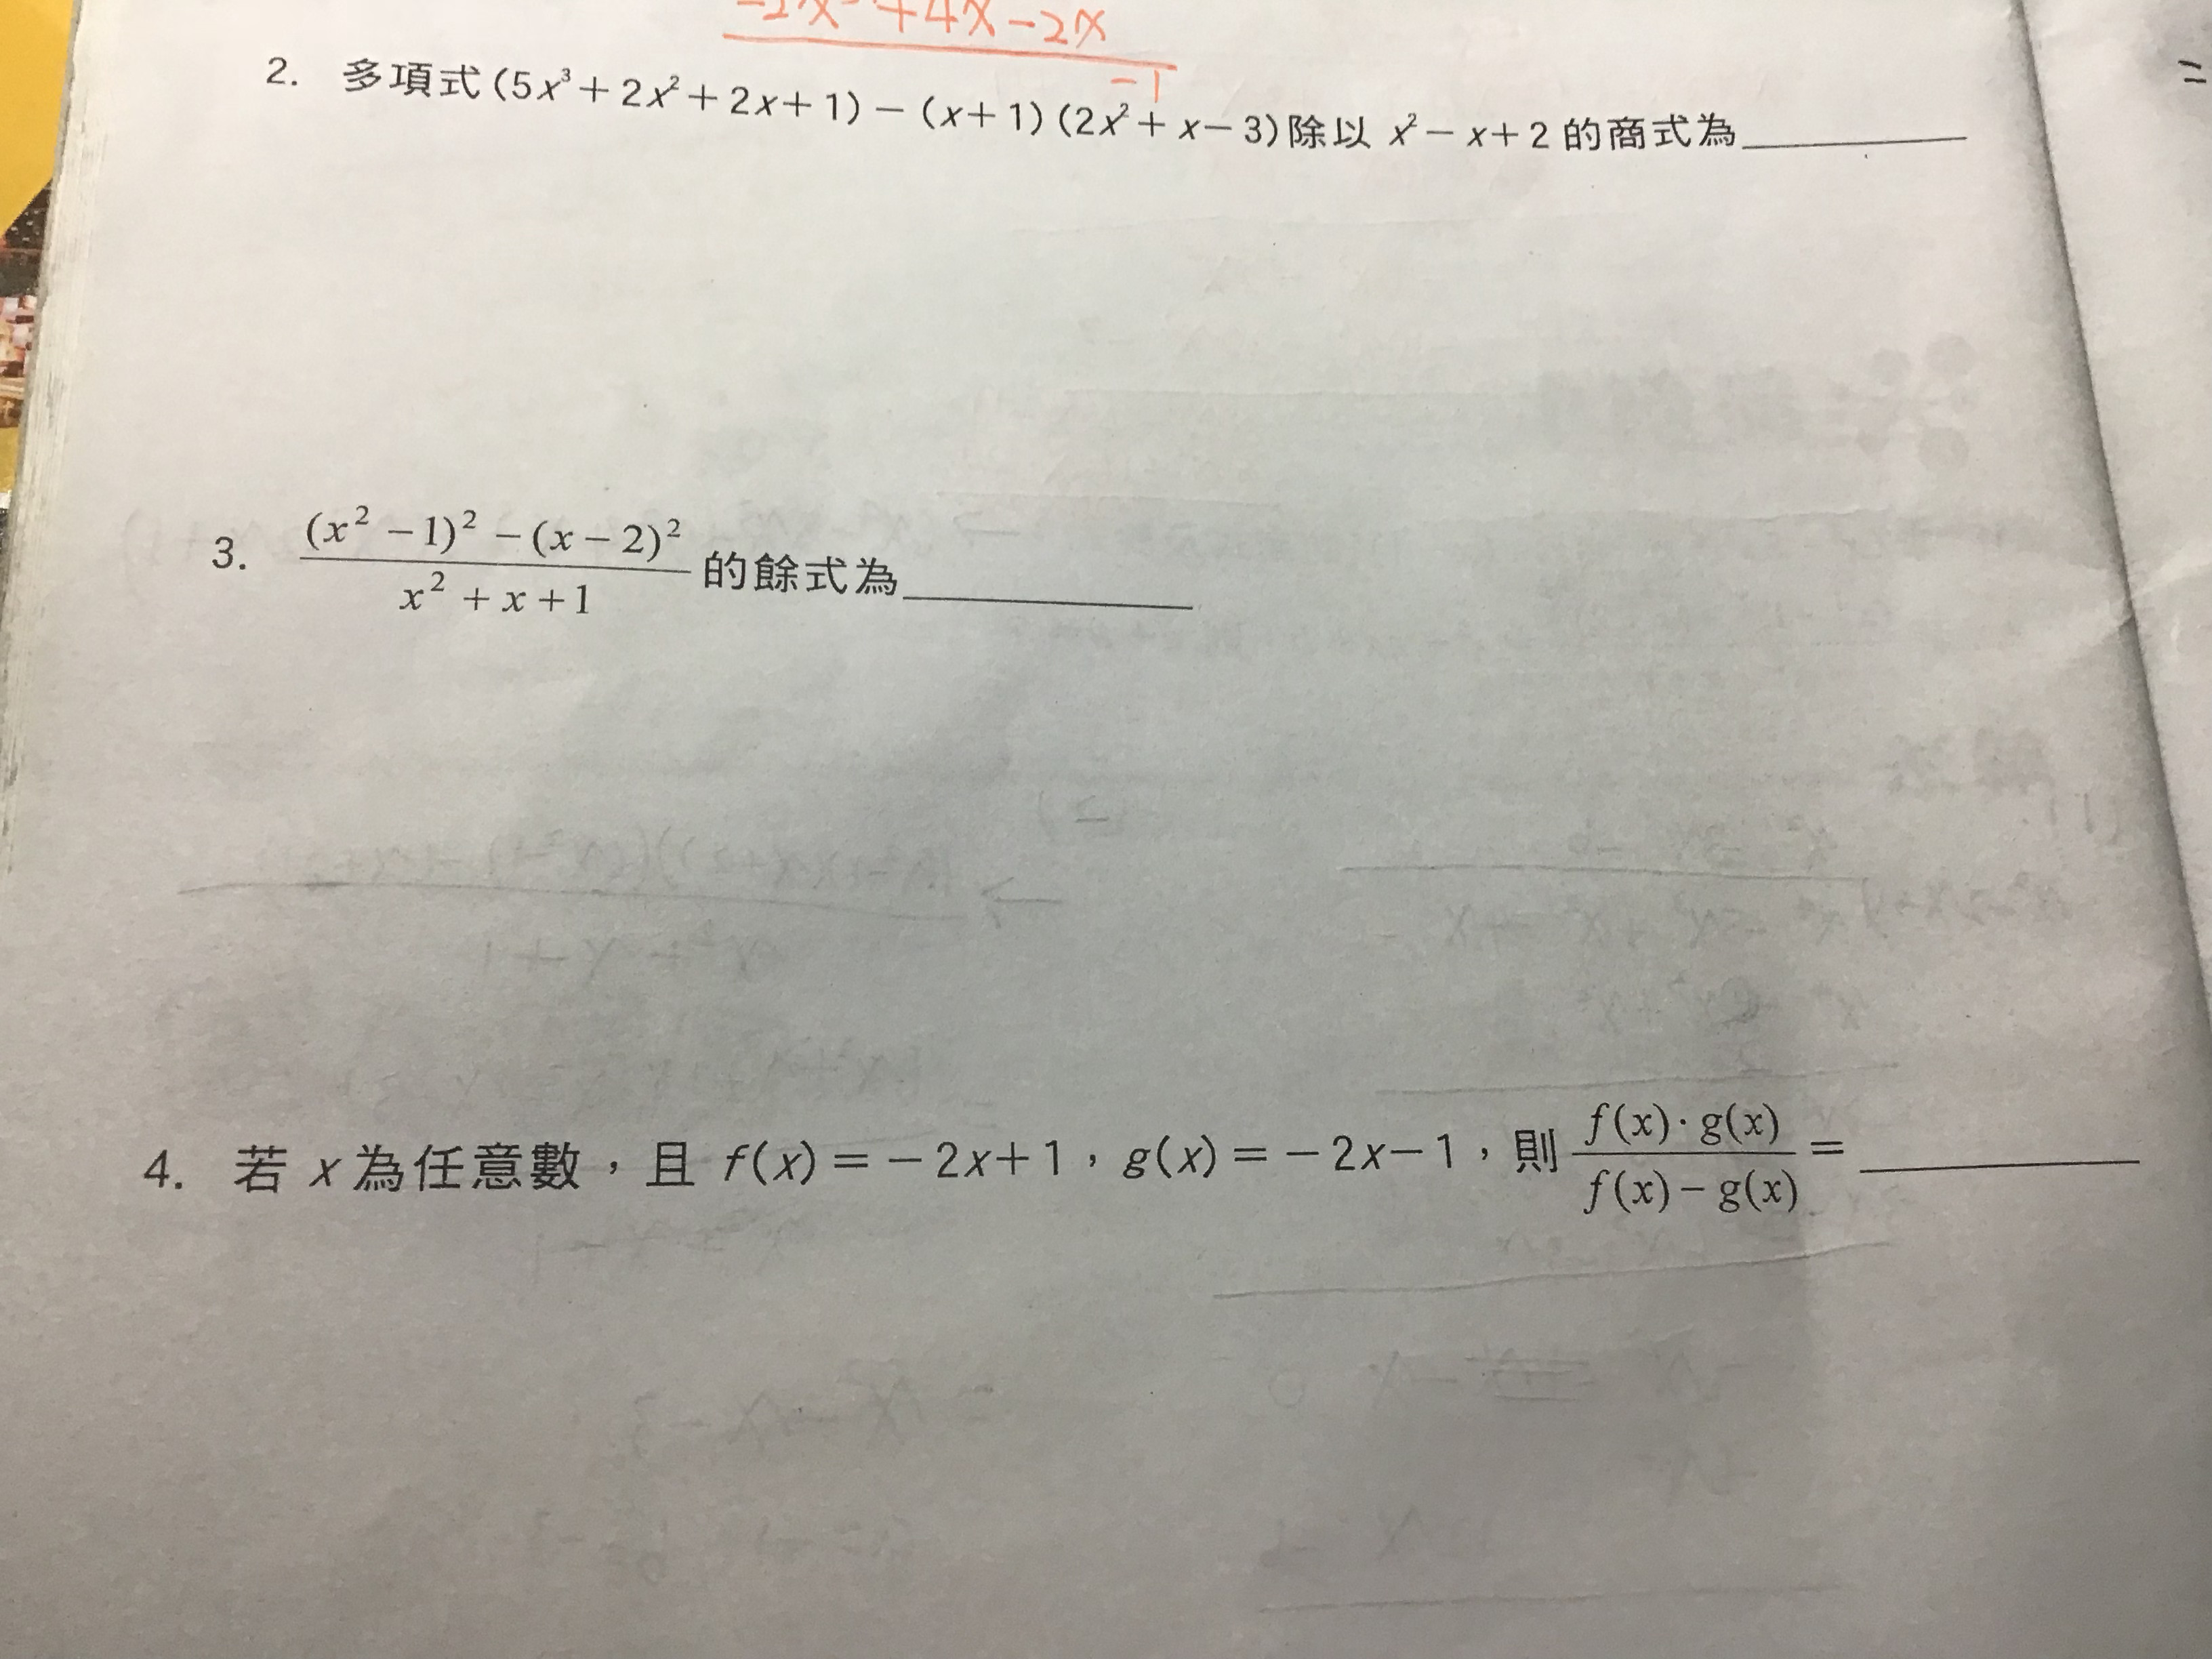 +4x-2x
-1
2. 多項式(5x³+2x²+2x+1)-(x+1)(2x²+x-3)除以 x²-x+2 的商式為________
=
3. \frac{(x²-1)²-(x-2)²}{x²+x+1} 的餘式為________
4. 若 x 為任意數，且 f(x)=-2x+1，g(x)=-2x-1，則 \frac{f(x)·g(x)}{f(x)-g(x)} = ________